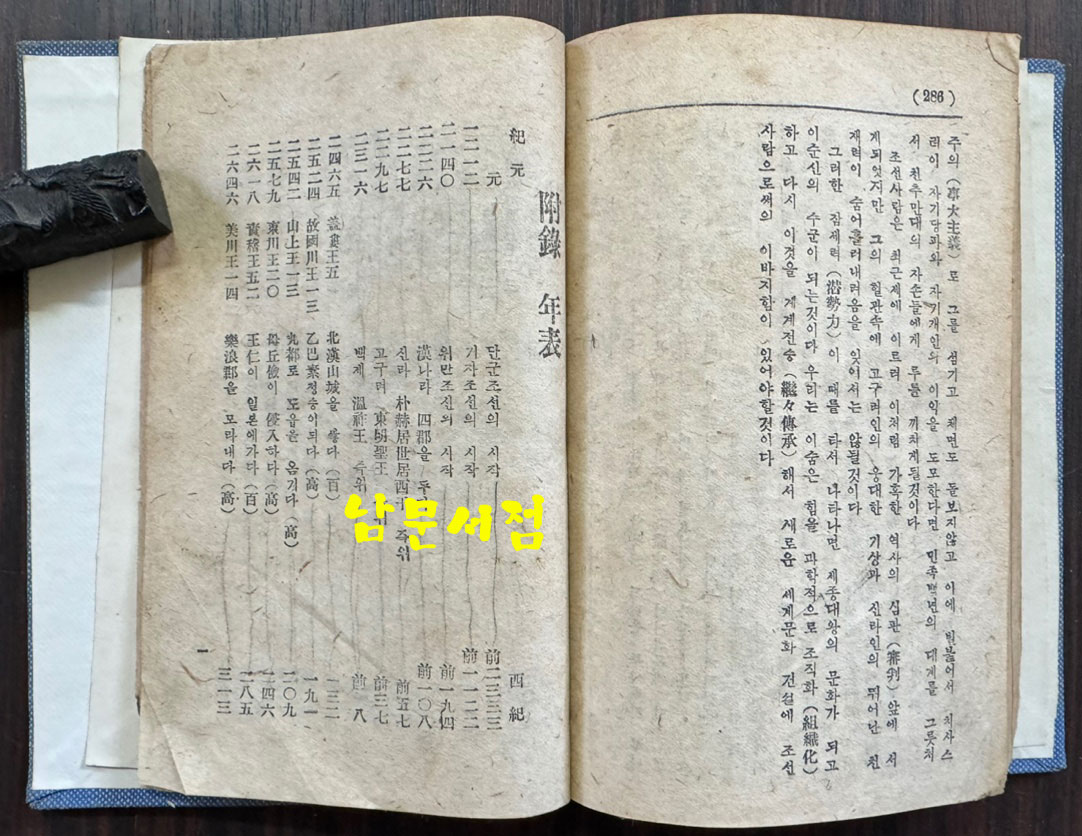 (286)
주의(事大主義)로 그를 섬기고 체면도 돌보지않고 이에 빌붙어서 치사스
레이 자기당파와 자기개인의 이익을 도모한다면 민족백년의 대계를 그릇쳐
서 천추만대의 자손들에게 루를 끼차게될것이다
조선사람은 최근세에 이르러 이처럼 가혹한 역사의 심판(審判)앞에 서
게되엿지만 그의 혈관속에 고구려인의 웅대한 기상과 신라인의 뛰어난 천
재력이 숨어흘러내려옴을 잇어서는 않될것이다
그러한 잠세력(潜勢力)이 때를 타서 나타나면 세종대왕의 문화가 되고
이순신의 수군이 되는것이다 우리는 이숨은 힘을 과학적으로 조직화(組織化)
하고 다시 이것을 계계전승(繼々傳承)해서 새로운 세계문화 건설에 조선
사람으로써의 이바지함이 있어야할것이다
附錄 年表
紀元 西紀
元 단군조선의 시작 前二三三三
一二一二 기자조선의 시작 前一一二二
二一四〇 위만조선의 시작 前一九四
二二二六 漢나라 四郡을 두다 前一〇八
二二七七 신라 朴赫居世居西干 즉위 前五七
二二九七 고구려 東明聖王 前三七
二三一六 백제 溫祚王 즉위 前一八
二四六五 蓋婁王五 北漢山城을 쌓다(百) 一三二
二五二四 故國川王一三 乙巴素정승이되다(高) 一九一
二五四二 山上王一三 丸都로 도읍을 옴기다(高) 二〇九
二五七九 東川王二〇 毋丘儉이 侵入하다(高) 二四六
二六一八 責稽王五二 王仁이 일본에가다(百) 二八五
二六四六 美川王一四 樂浪郡을 모라내다(高) 三一三
一
남문서점